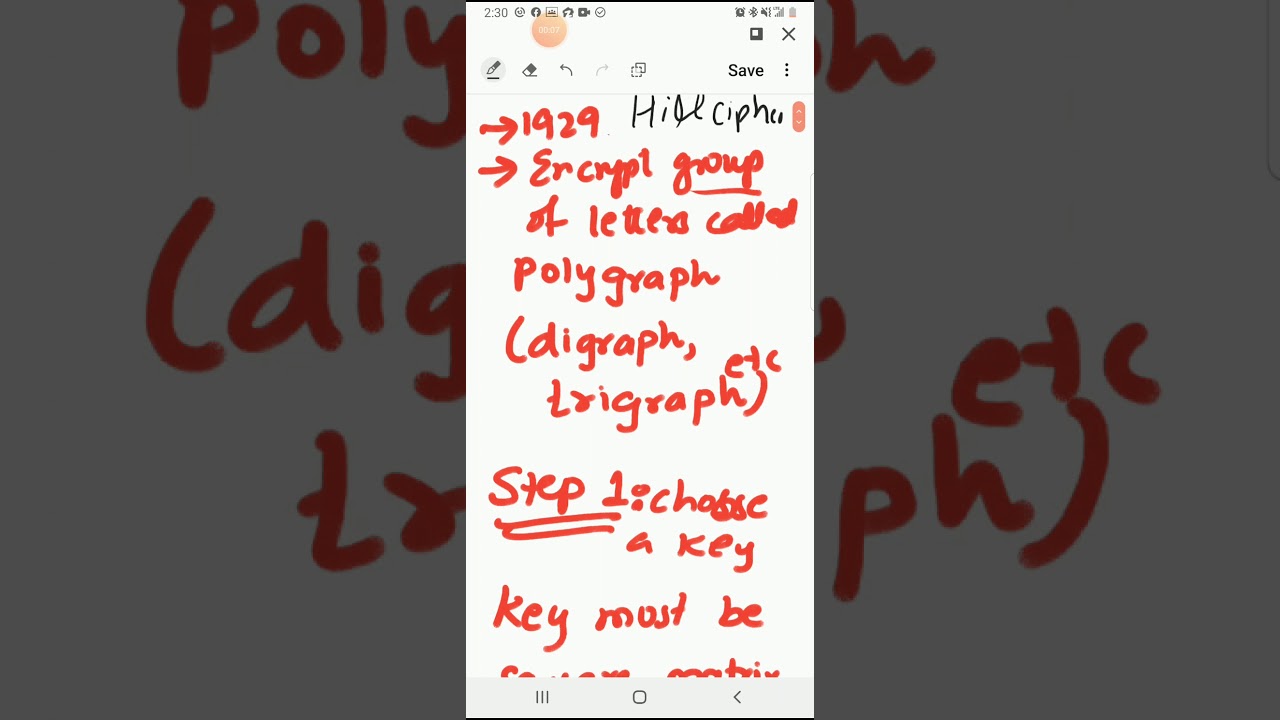 2:30
00:07
Save
Hill cipher
→ 1929
→ Encrypt group
of letters called
polygraph
(digraph,
trigraph etc)
Step 1: choose
a key
key must be
square matrix